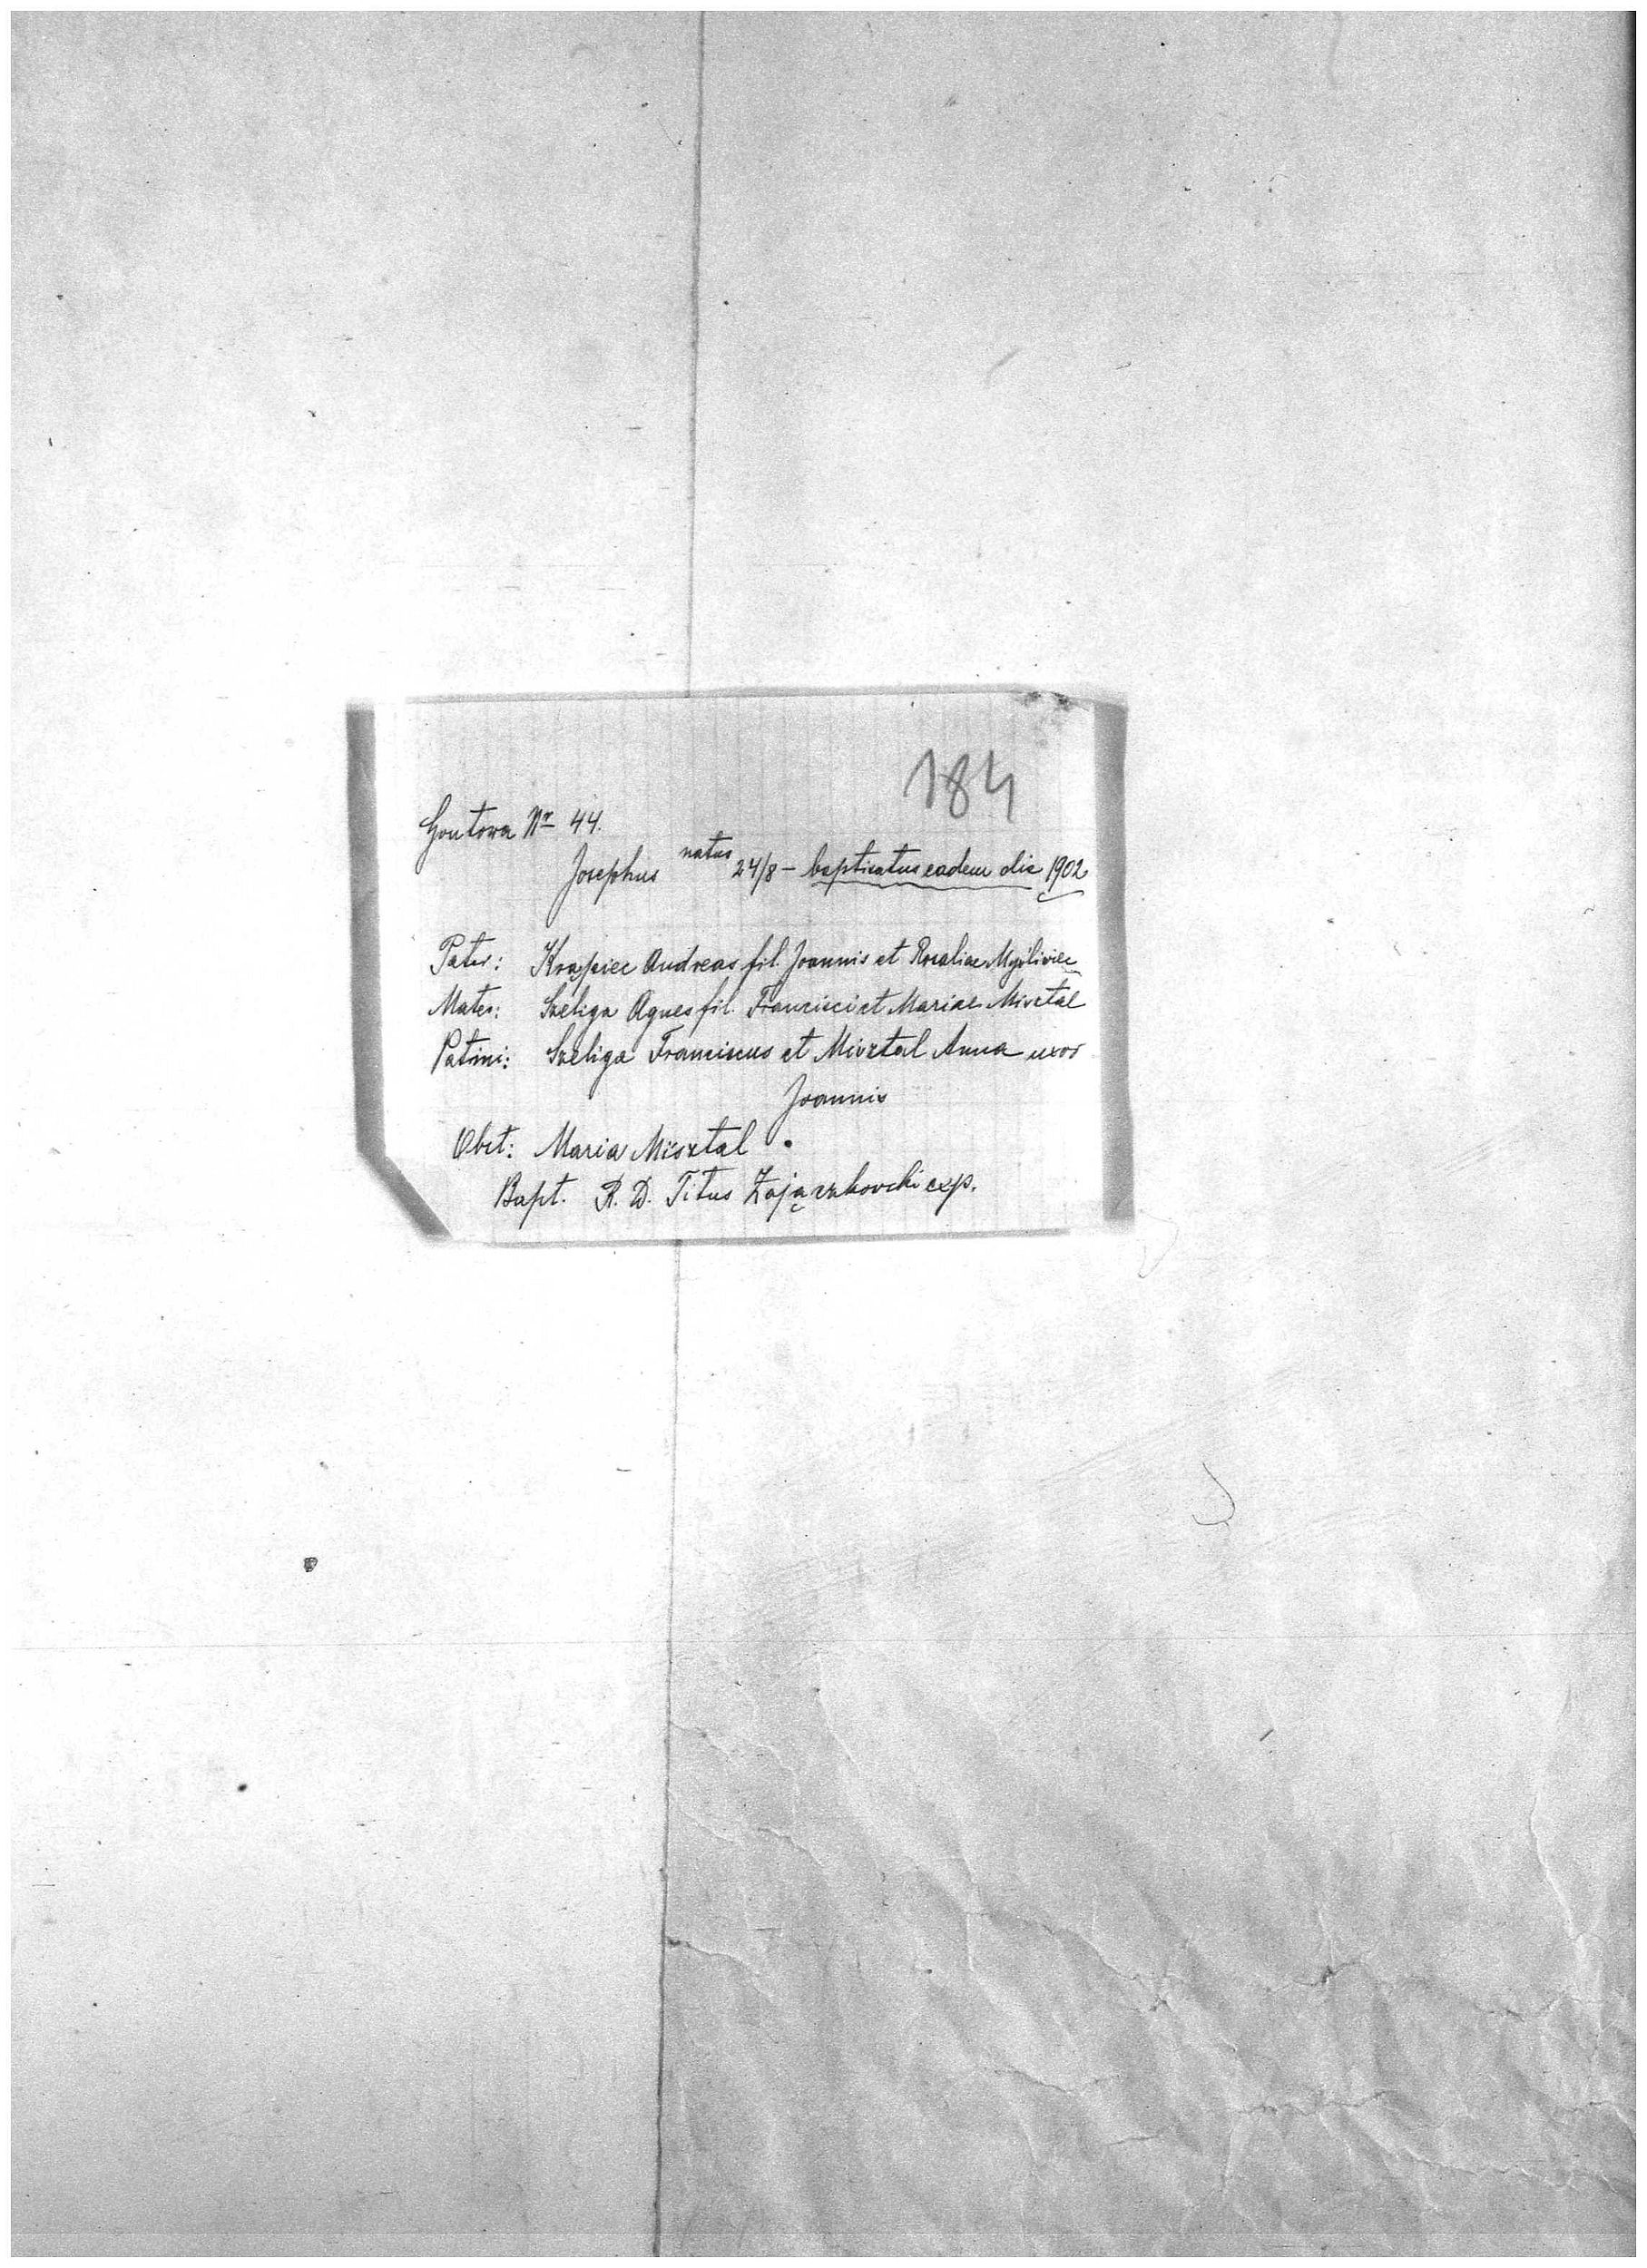 184
Gontowa Nr 44.
Josephus natus 24/8 - baptisatus eadem die 1902
Pater: Krąpiec Andreas fil. Joannis et Rosaliae Myśliwiec
Mater: Szeliga Agnes fil. Francisci et Mariae Misztal
Patrini: Szeliga Franciscus et Misztal Anna uxor
Joannis
Obst: Maria Misztal
Bapt. R. D. Titus Zajączkowski exp.